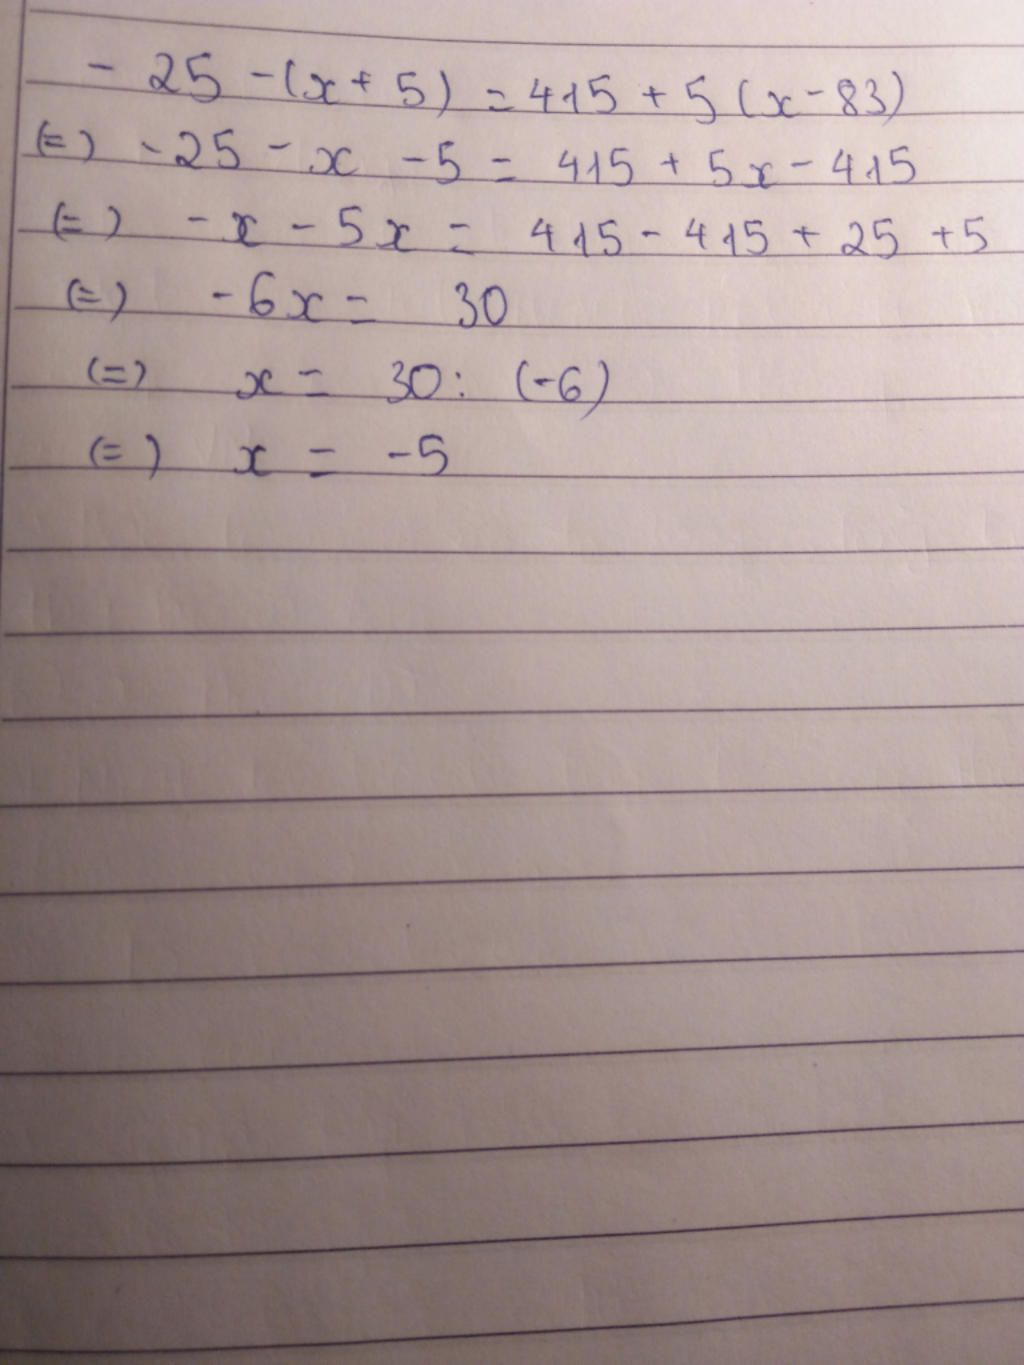 - 25 -(x + 5) = 415 + 5 (x - 83)
(=) -25 - x - 5 = 415 + 5x - 415
(=) - x - 5x = 415 - 415 + 25 + 5
(=) - 6x = 30
(=) x = 30 : (-6)
(=) x = -5